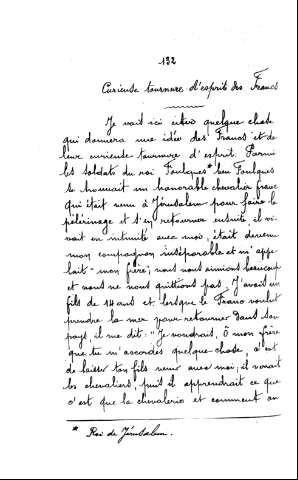 132
Curieuse tournure d'esprit des Francs
Je vais ici citer quelque chose
qui donnera une idée des Francs et de
leur curieuse tournure d'esprit. Parmi
les soldats du roi Foulques* ben Foulques
se trouvait un honorable chevalier franc
qui était venu à Jérusalem pour faire le
pèlerinage et s'en retourner ensuite il vi-
vait en intimité avec moi, était devenu
mon compagnon inséparable et m'appe-
lait "mon frère"; nous nous aimions beaucoup
et nous ne nous quittions pas. J'avais un
fils de 14 ans et lorsque le Franc voulut
prendre la mer pour retourner dans son
pays, il me dit: "Je voudrais, Ô mon frère
que tu m'accordes quelque chose, c'est
de laisser ton fils venir avec moi; il verrait
les chevaliers, puis il apprendrait ce que
c'est que la chevalerie et comment on
* Roi de Jérusalem.